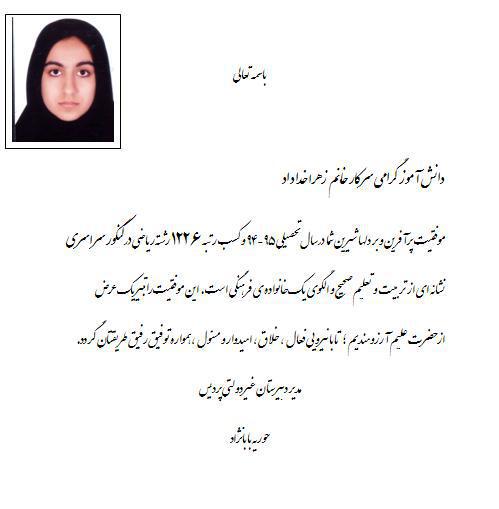 باسمه تعالی
دانش آموز گرامی سرکار خانم زهرا خداداد
موفقیت پر آفرین و بر دلها شیرین شما در سال تحصیلی ۹۵-۹۴ و کسب رتبه ۱۲۲۶ رشته ریاضی در کنکور سراسری
نشانه ای از تربیت و تعلیم صحیح و الگوی یک خانواده ی فرهنگی است. این موفقیت را تبریک عرض
از حضرت علیم آرزومندیم ؛ تا با نیرویی فعال ، خلاق ، امیدوار و مسئول ، همواره توفیق رفیق طریقتان گردد.
مدیر دبیرستان غیر دولتی پردیس
حوریه بابانژاد